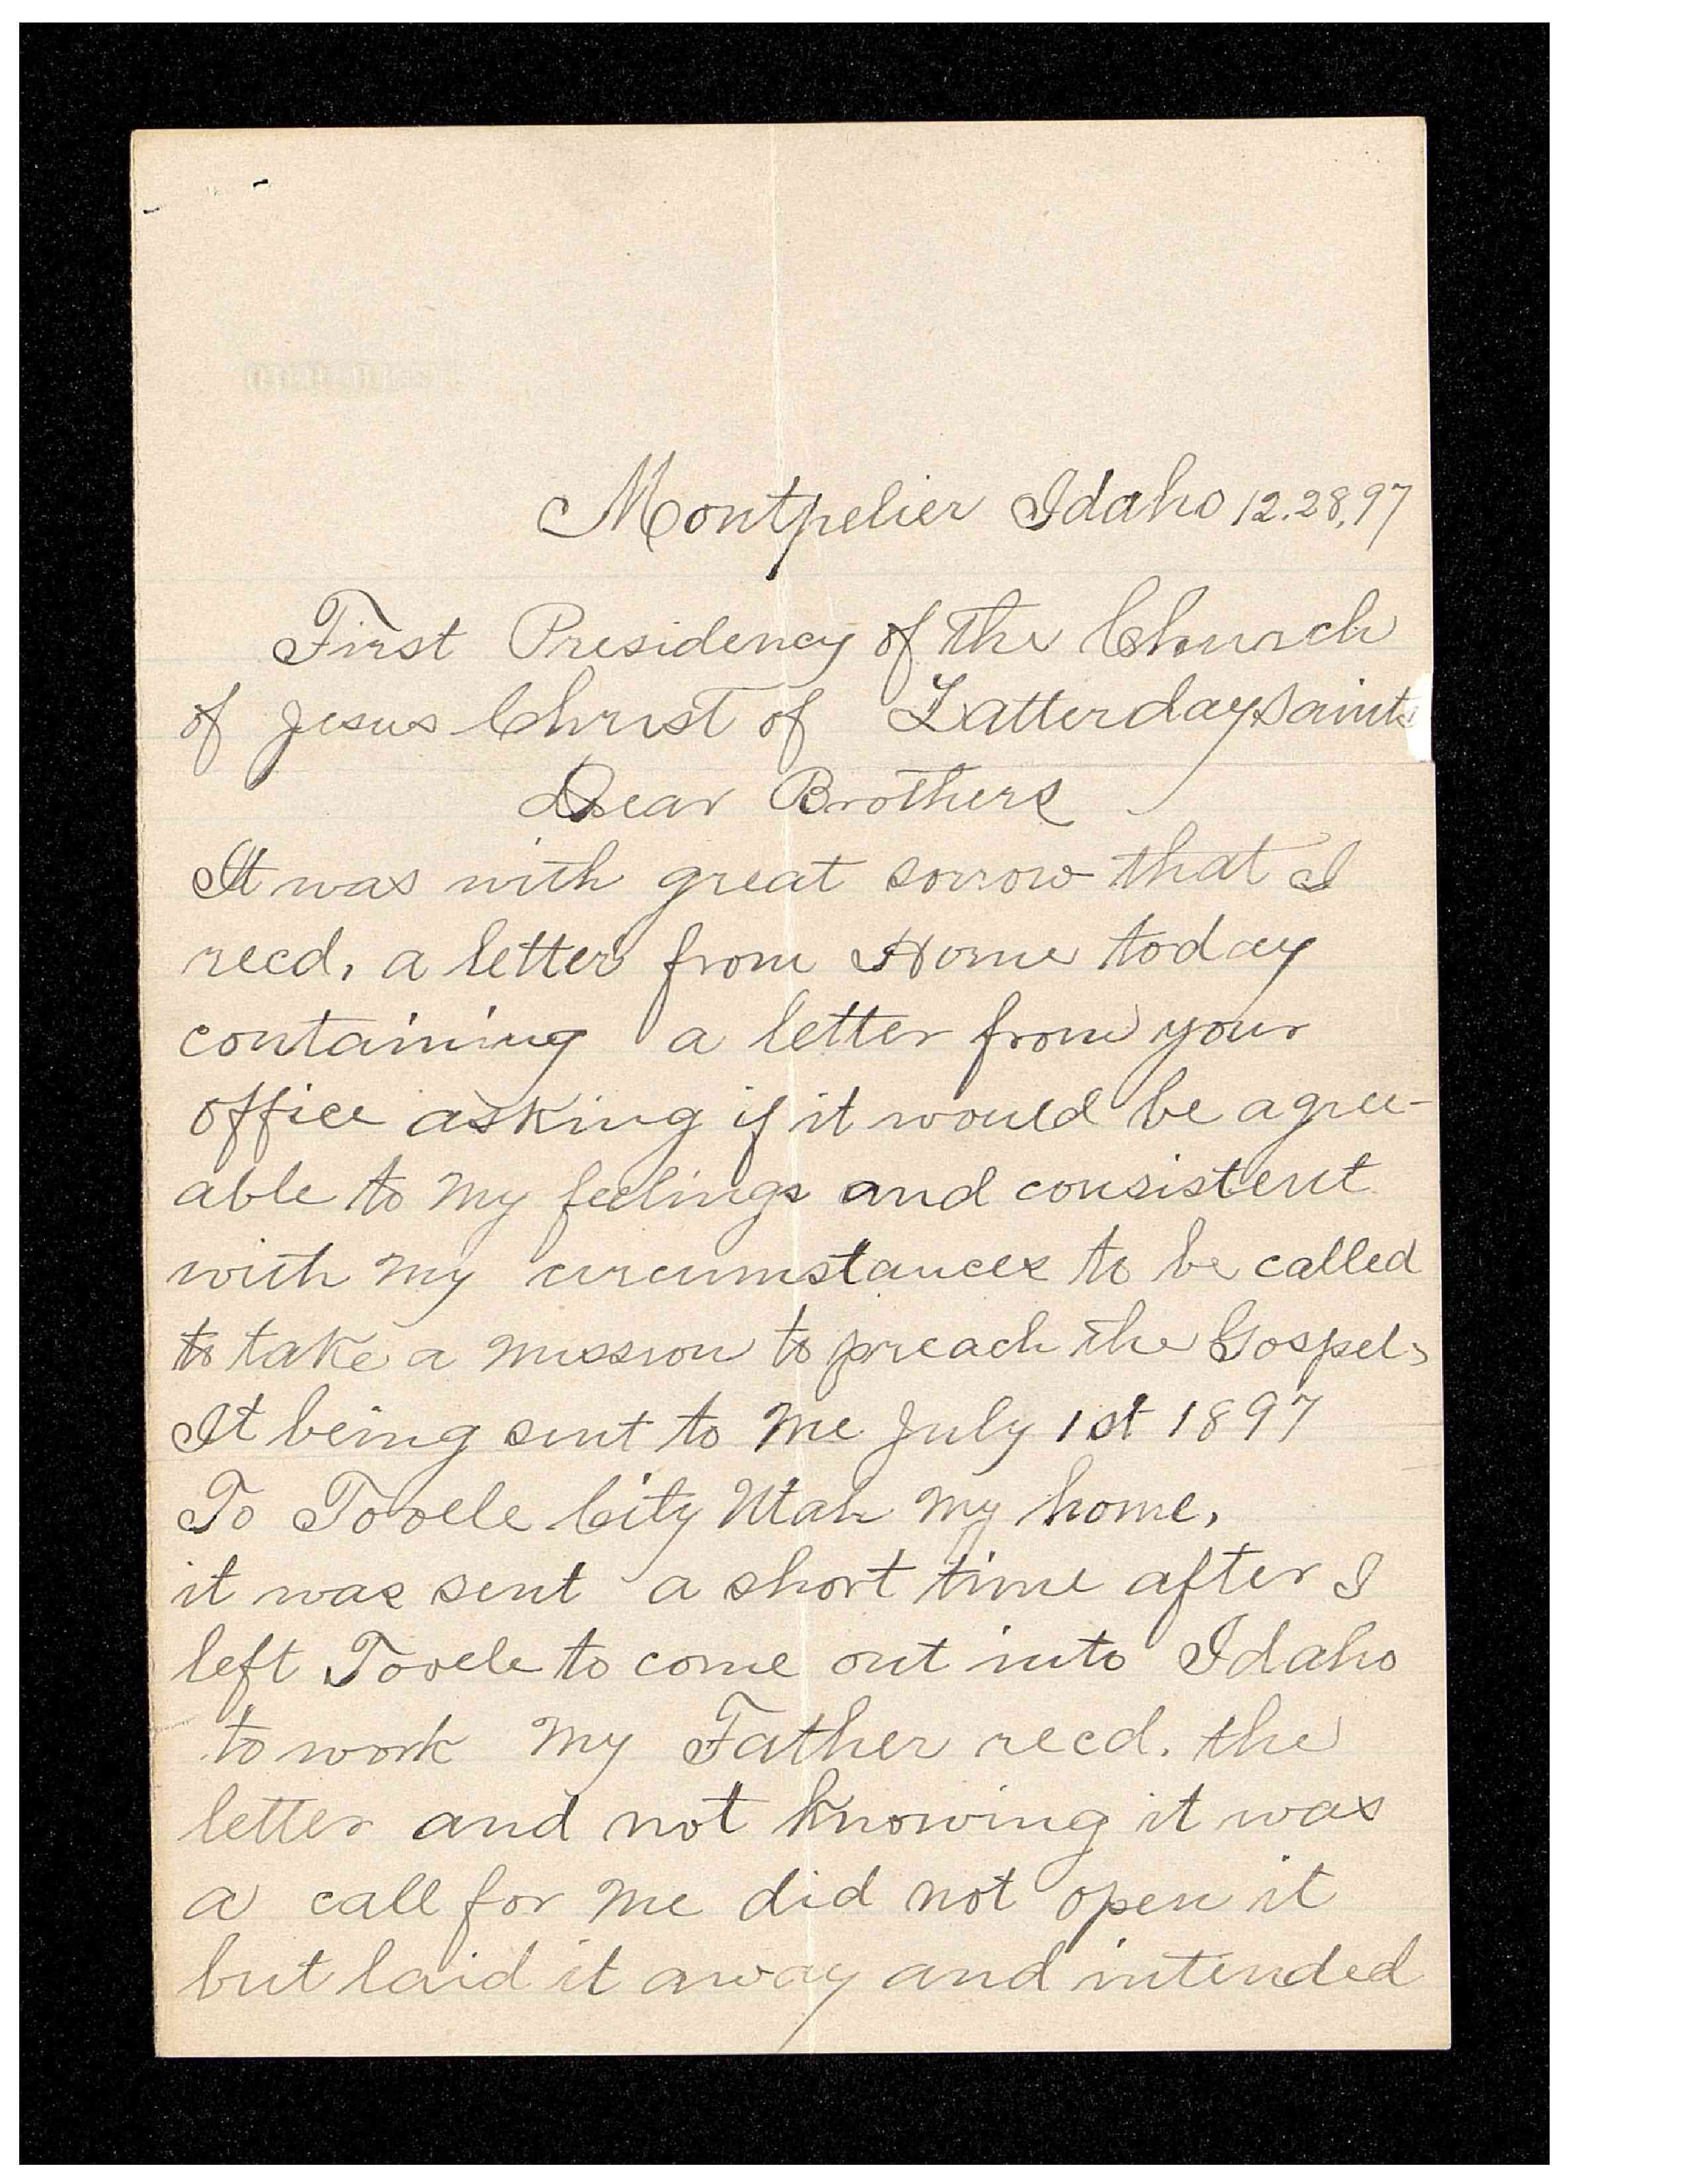 Montpelier Idaho 12.28,97
First Presidency of the Church
of Jesus Christ of Latterday Saints
Dear Brothers
It was with great sorrow that I
recd, a letter from Home today
containing a letter from your
office asking if it would be agree-
able to my feelings and consistent
with my circumstances to be called
to take a mission to preach the Gospel,
It being sent to me July 1st 1897
To Tooele City Utah my home,
it was sent a short time after I
left Tooele to come out into Idaho
to work my Father recd. the
letter and not knowing it was
a call for me did not open it
but laid it away and intended